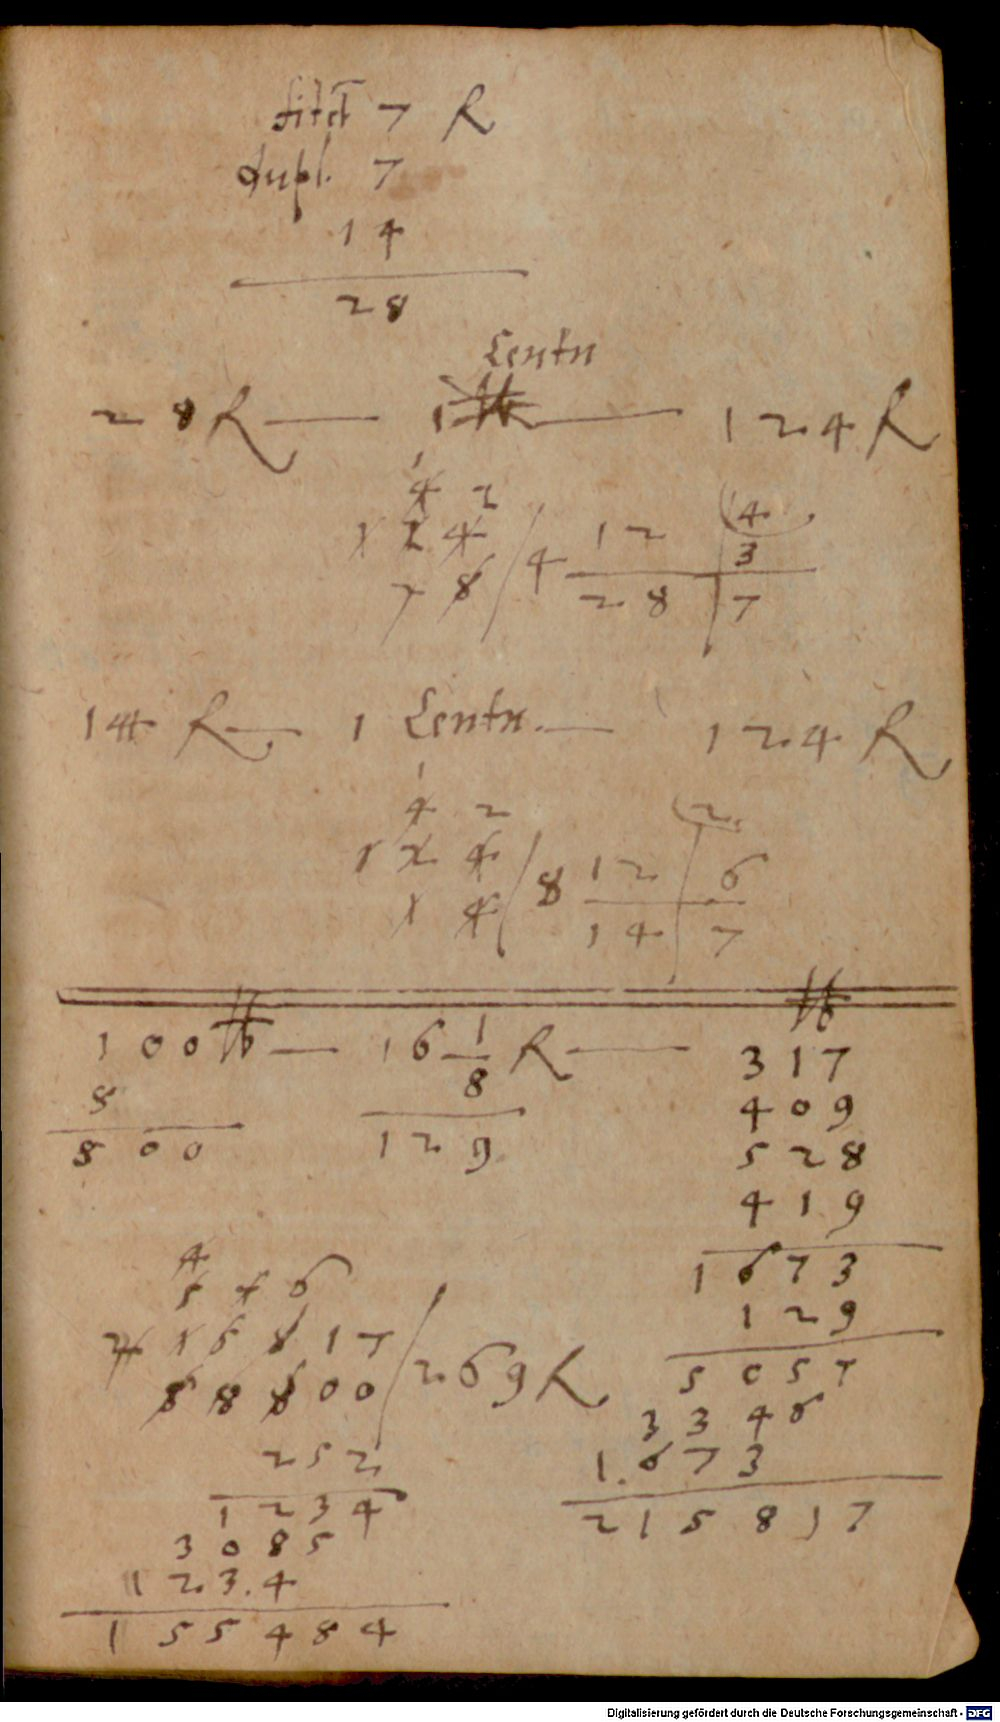 7 R
dupl. 7
14
28
Centn
28 R — 1 — 124 R
1
4 2 (4
1 2 4 / 4 12 | 3
7 8 28 | 7
14 R — 1 Centn. — 124 R
1
4 2 (2
1 2 4 / 8 12 | 6
1 4 14 | 7
℔
100 ℔ — 16 1/8 R — 317
8 409
800 129 528
419
4 1673
5 4 6 129
2 1 5 8 1 7 / 269 R 5057
8 8 8 0 0 3346
252 1.673
1234 215817
3085
123.4
155484
Digitalisierung gefördert durch die Deutsche Forschungsgemeinschaft - DFG